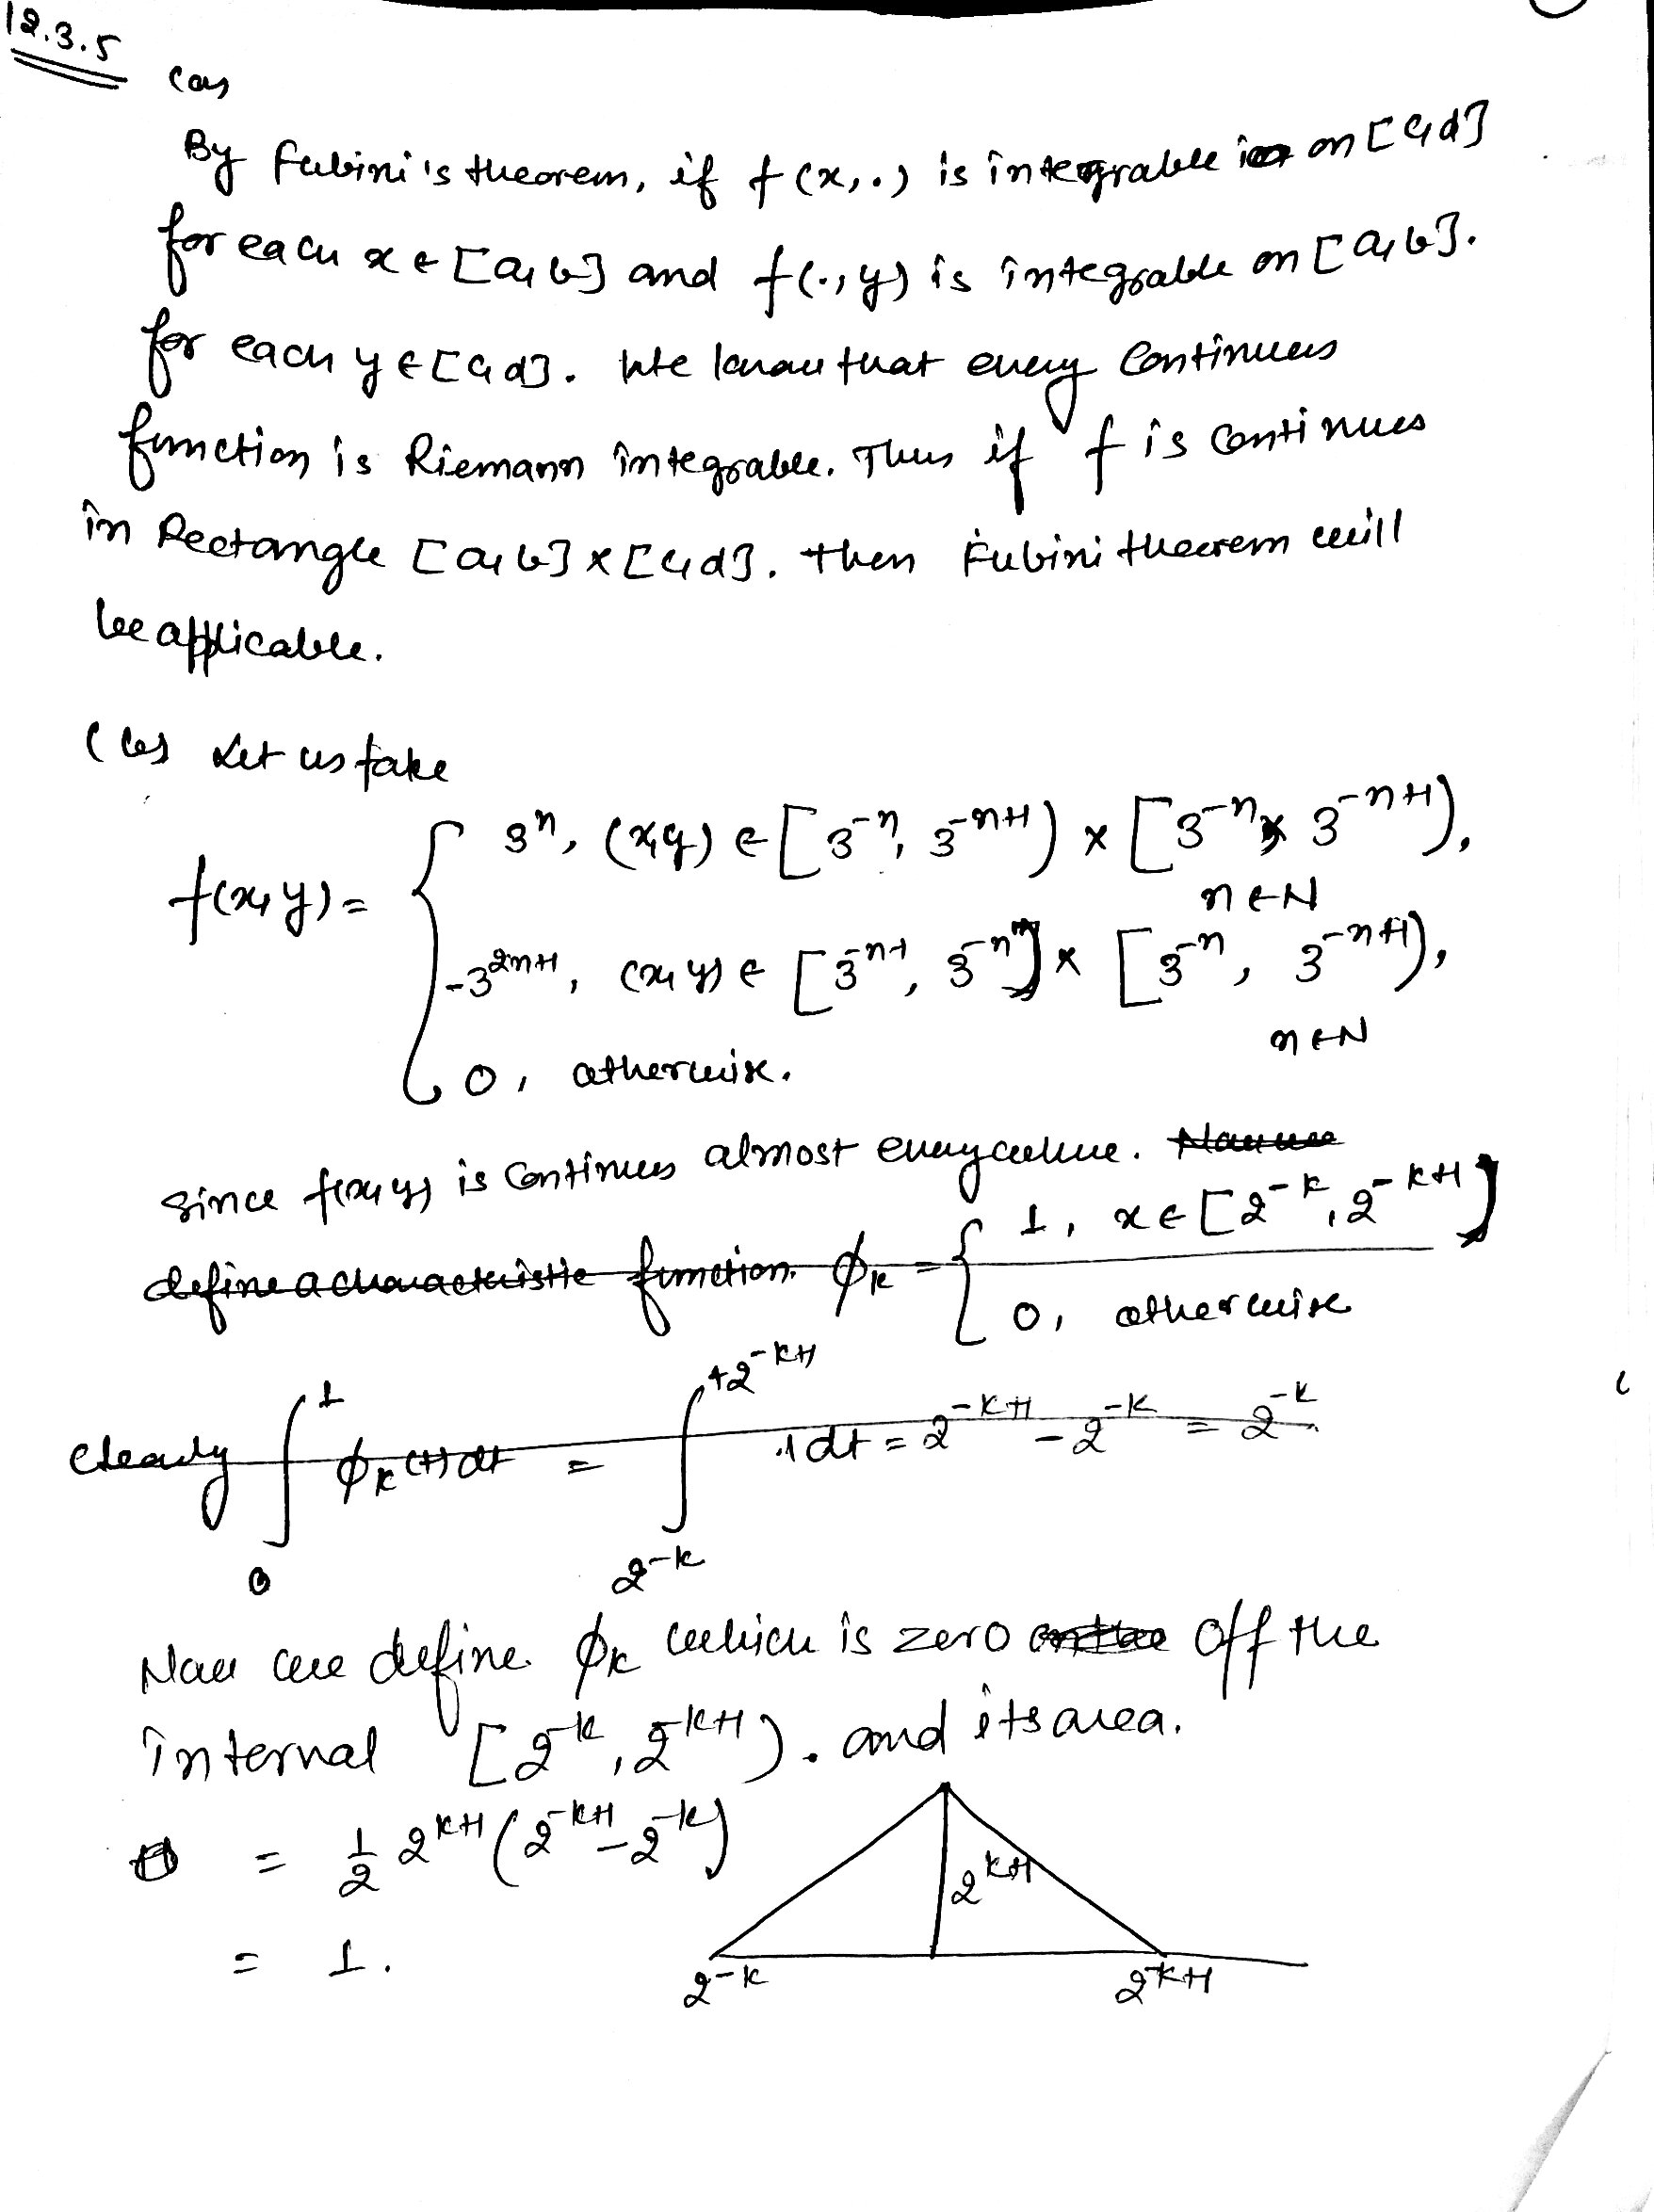 12.3.5
(a)
By Fubini's theorem, if f(x,.) is integrable on [c,d]
for each x ∈ [a,b] and f(.,y) is integrable on [a,b].
for each y ∈ [c,d]. We know that every Continuous
function is Riemann integrable. Thus if f is continues
in Rectangle [a,b] x [c,d]. then Fubini theorem will
be applicable.
(b) Let us take
f(x,y) = { 3^n, (x,y) ∈ [3^-n, 3^-n+1) x [3^-n, 3^-n+1), n∈N
-3^2n+1, (x,y) ∈ [3^-n-1, 3^-n) x [3^-n, 3^-n+1), n∈N
0, otherwise.
Since f(x,y) is continues almost everywhere. Now we
define a characteristic function. φk = { 1, x ∈ [2^-k, 2^-k+1)
0, otherwise
Clearly ∫_0^1 φk(t)dt = ∫_{2^-k}^{+2^-k+1} 1 dt = 2^-k+1 - 2^-k = 2^-k
Now we define φk which is zero off the
interval [2^-k, 2^-k+1). and its area.
= 1/2 2^k+1 (2^-k+1 - 2^-k)
2^k+1
= 1.
2^-k 2^-k+1